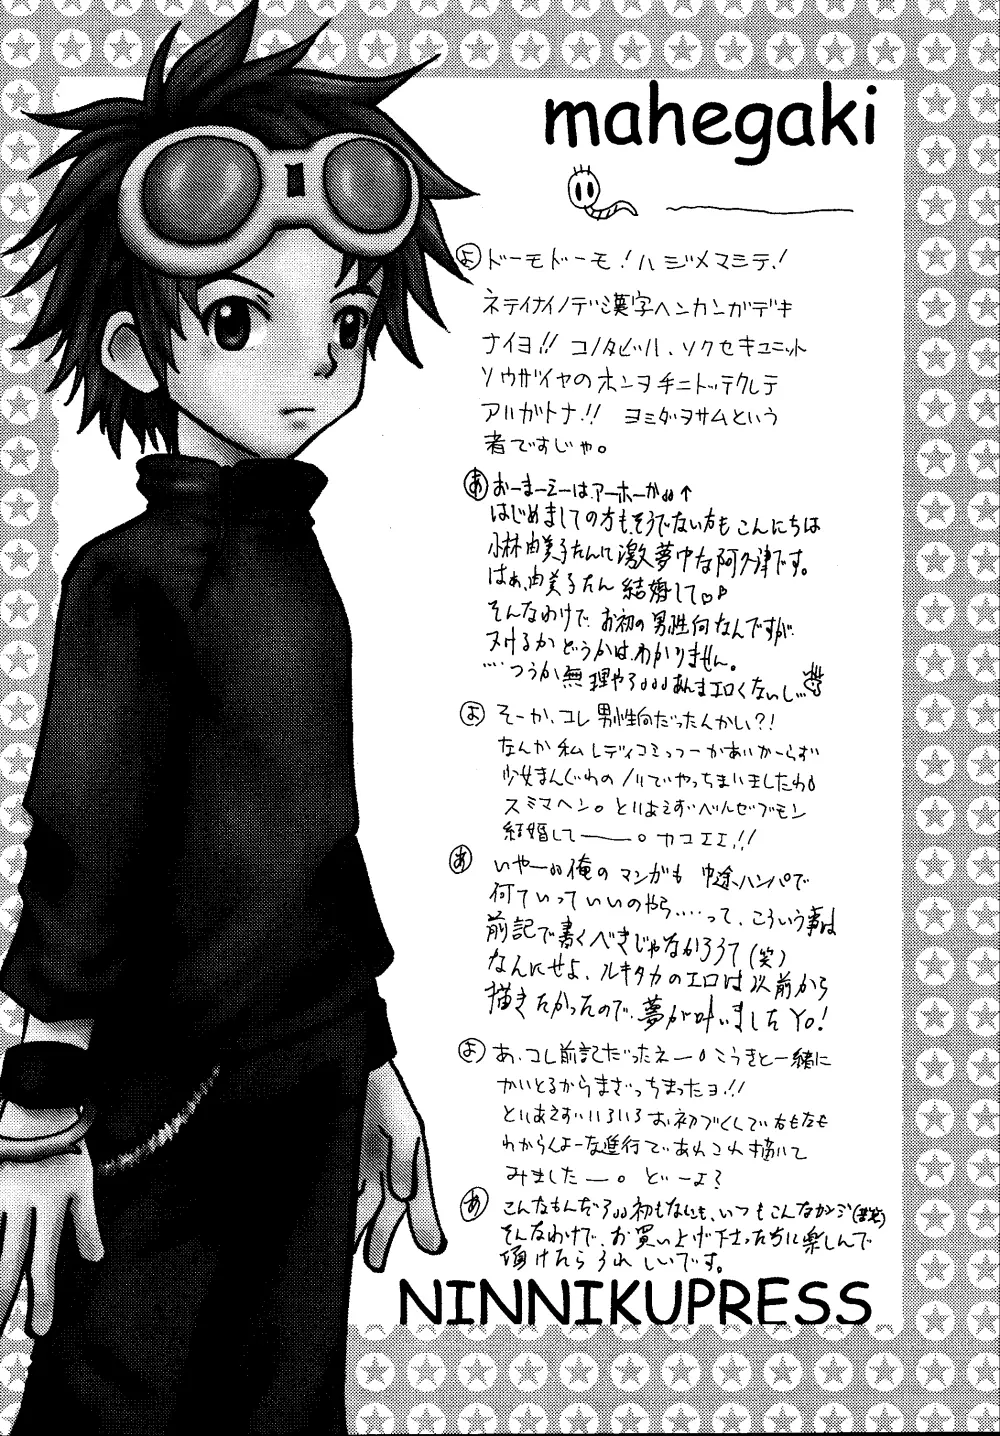 mahegaki
よ ドーモドーモ!ハジメマシテ!
ネテイナイノデ漢字ヘンカンガデキ
ナイヨ!! コノタビハ、ソクセキユニット
ソウザイヤのホンヲ手ニトッテクレテ
アリガトナ!! ヨミダヲサムという
者ですじゃ。
あ おーまーえーは、アーホーかぁ↑
はじめましての方も、そうでない方も こんにちは
小林由美子たんに激夢中な阿久津です。
はぁ、由美子たん 結婚して♡♪
そんなわけで、お初の男性向なんですが、
ヌけるかどうかは、わかりません。
…つうか無理やろ。。。あんまエロくないし…
よ そーか、コレ男性向だったんかい?!
なんか私 レディコミっつーかあいかーらず
少女まんがのノリでやっちまいましたわ。
スミマヘン。とりあえずベルゼブモン
結婚して――。カコエエ!!
あ いやー俺のマンガも 中途ハンパで
何ていっていいのやら……って、こういう事は
前記で書くべきじゃなかろうて(笑)
なんにせよ、ルキタカのエロは以前から
描きたかったので、夢が叶いましたYo!
よ あ、コレ前記だったネー。こうきと一緒に
かいとるからまざっちまったヨ!!
とりあえずいろいろお初づくしで右も左も
わからんよーな進行であれこれ描いて
みましたー。どーよ?
あ こんなもんだろ。初もなにも、いつもこんなカンジ(苦笑)
そんなわけで、お買い上げ下さった方に楽しんで
頂けたらうれしいです。
NINNIKUPRESS